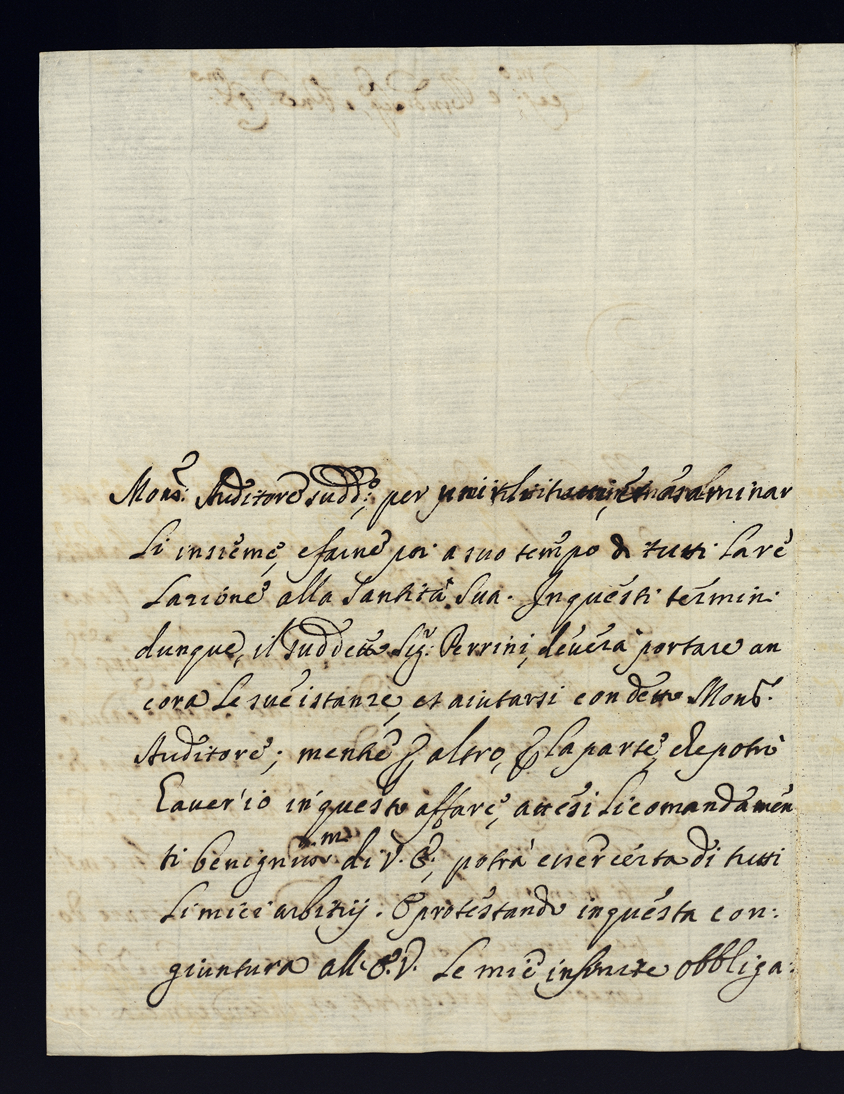 Mons.r Auditore sudd.o, per poi esaminar
li insieme, e farne poi a suo tempo di tutti la re
lazione alla Santità Sua. In questi termini
dunque, il suddetto Sig.r Perrini, deverà portare an
cora le sue istanze, et aiutarsi con detto Mons.r
Auditore; mentre p altro, p la parte, che potrò
haver' io in questo affare, attesi li comandamen
ti benignissimi di V. E., potrà esser certa di tutti
li miei arbitrij. E protestando in questa con:
giuntura all' E. V. le mie infinite obbliga: